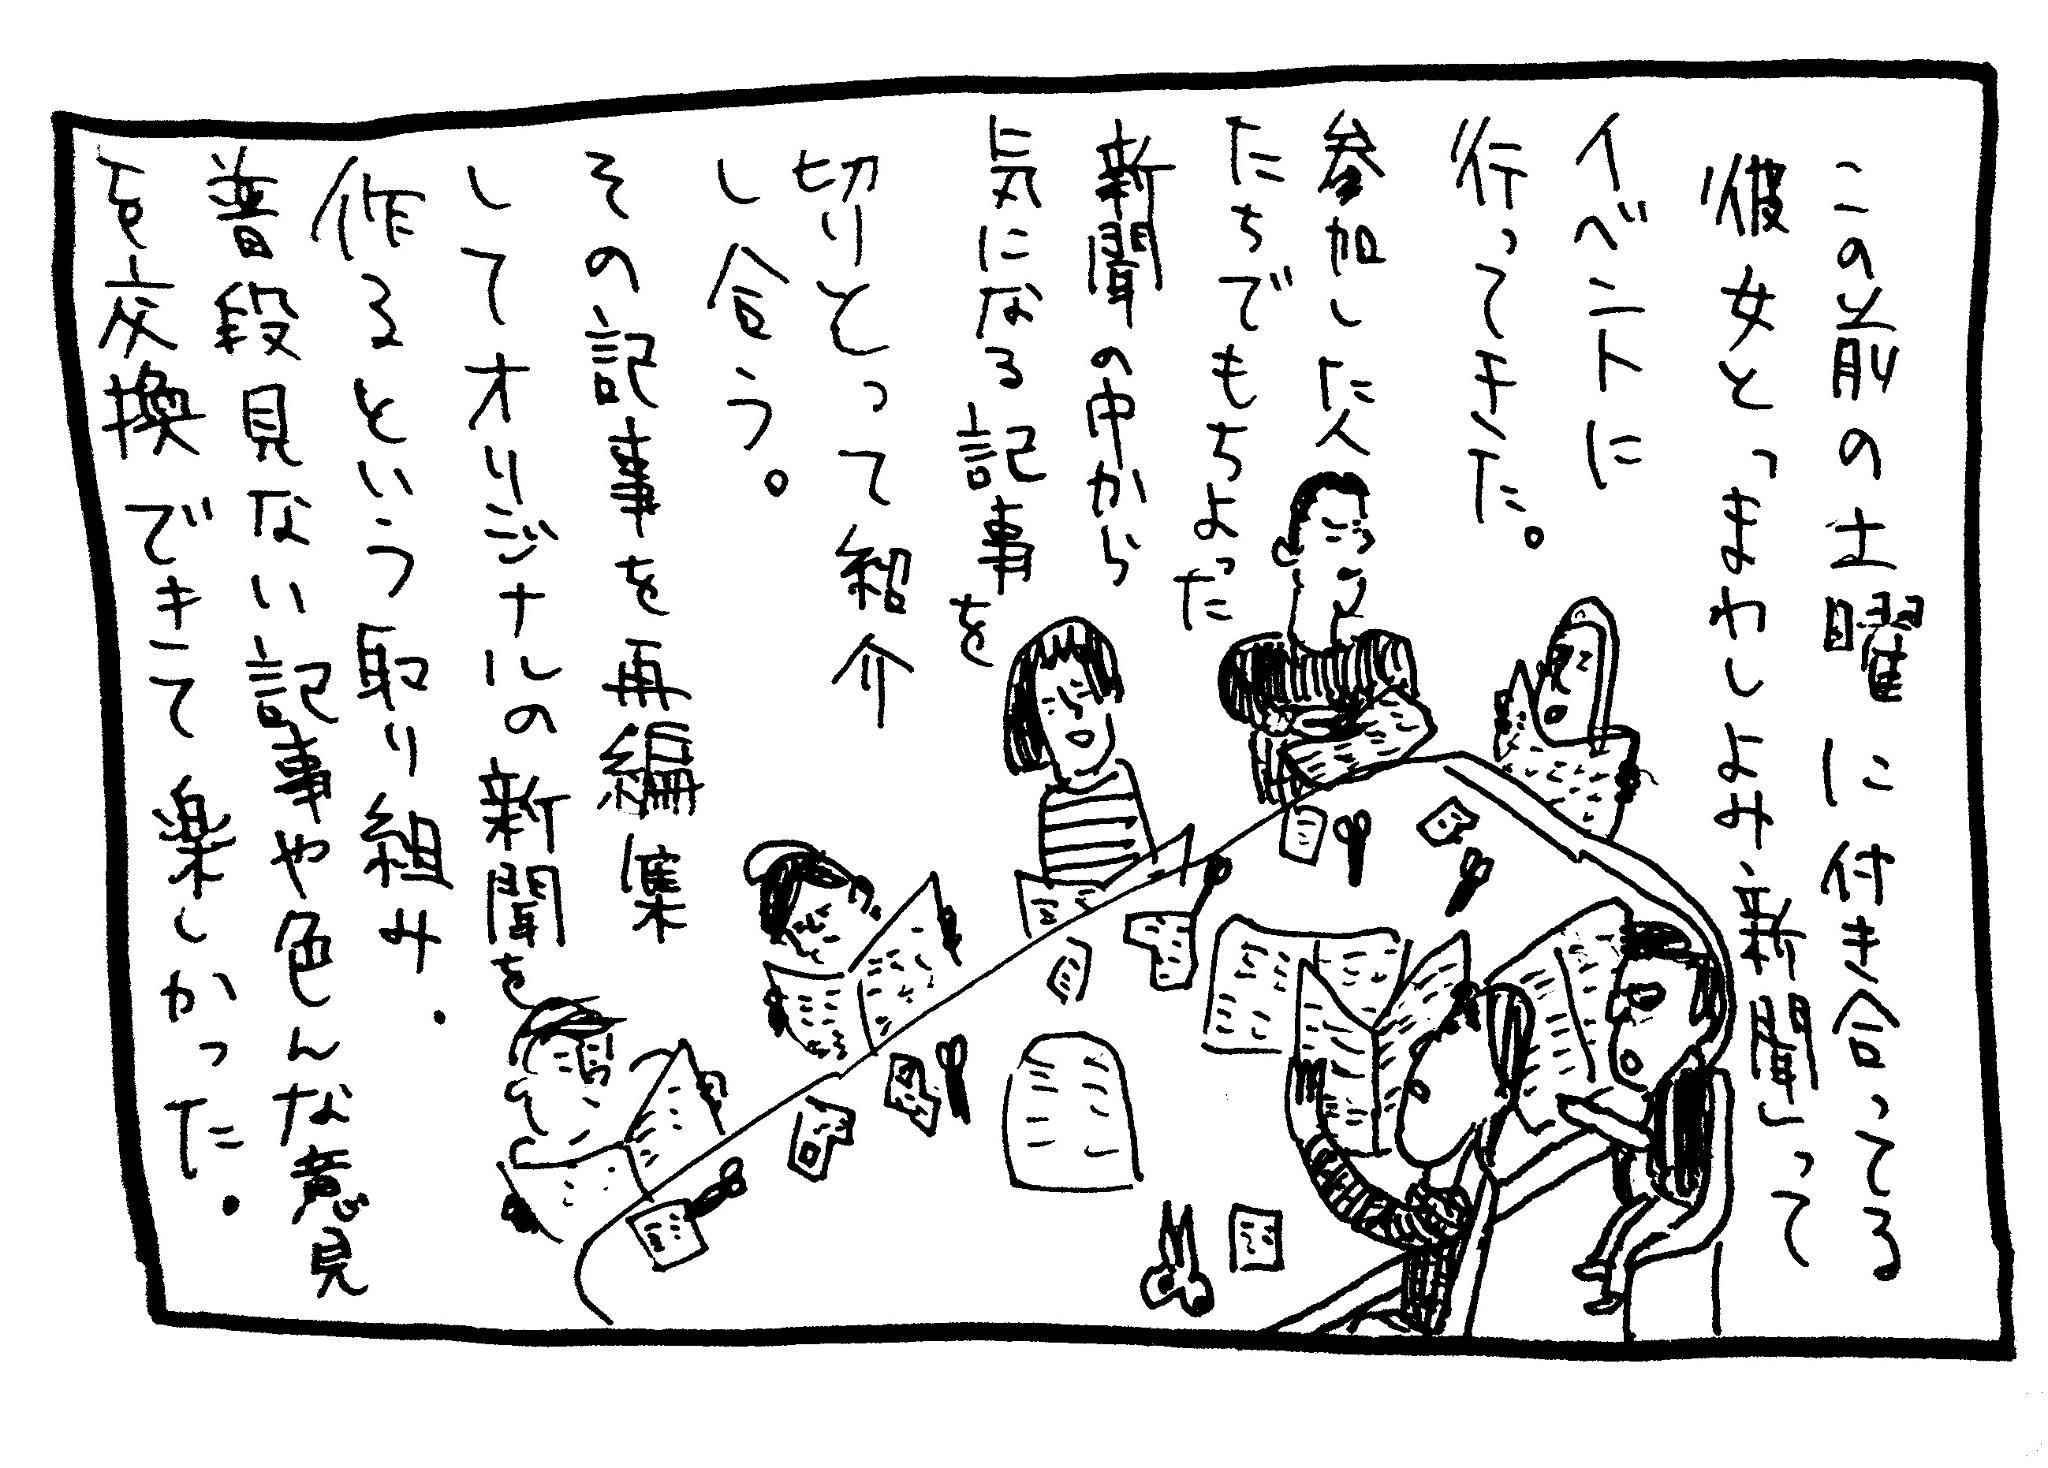 この前の土曜に付き合ってる
彼女と「まわしよみ新聞」って
イベントに
行ってキた。
参加した人
たちでもちよった
新聞の中から
気になる記事を
切りとって紹介
し合う。
その記事を再編集
してオリジナルの新聞を
作るという取り組み.
普段見ない記事や色んな意見
を交換できて楽しかった.